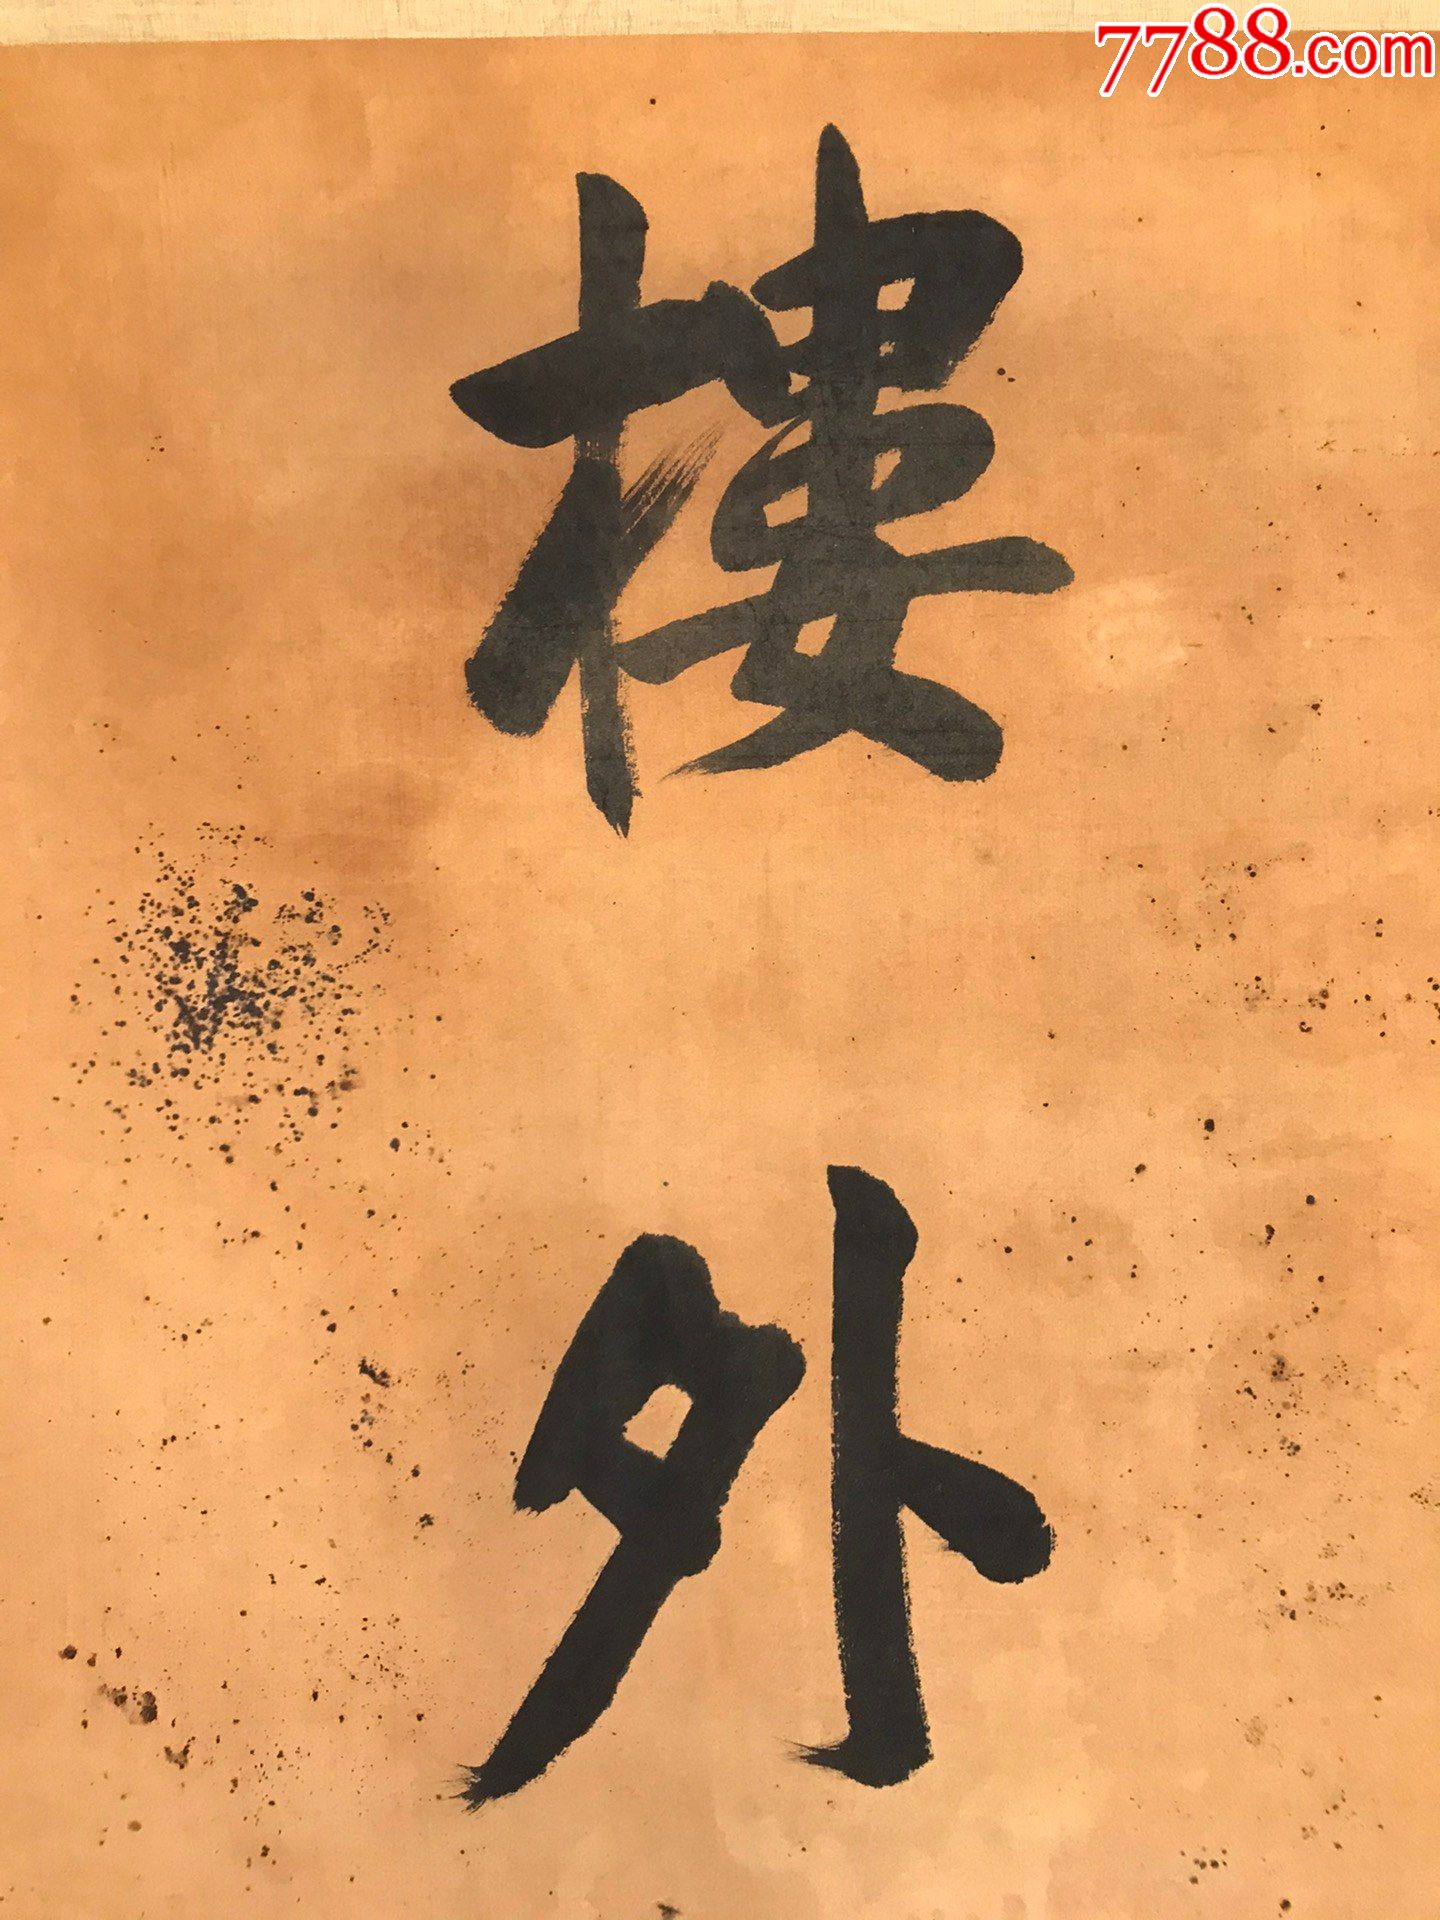 7788.com
樓
外